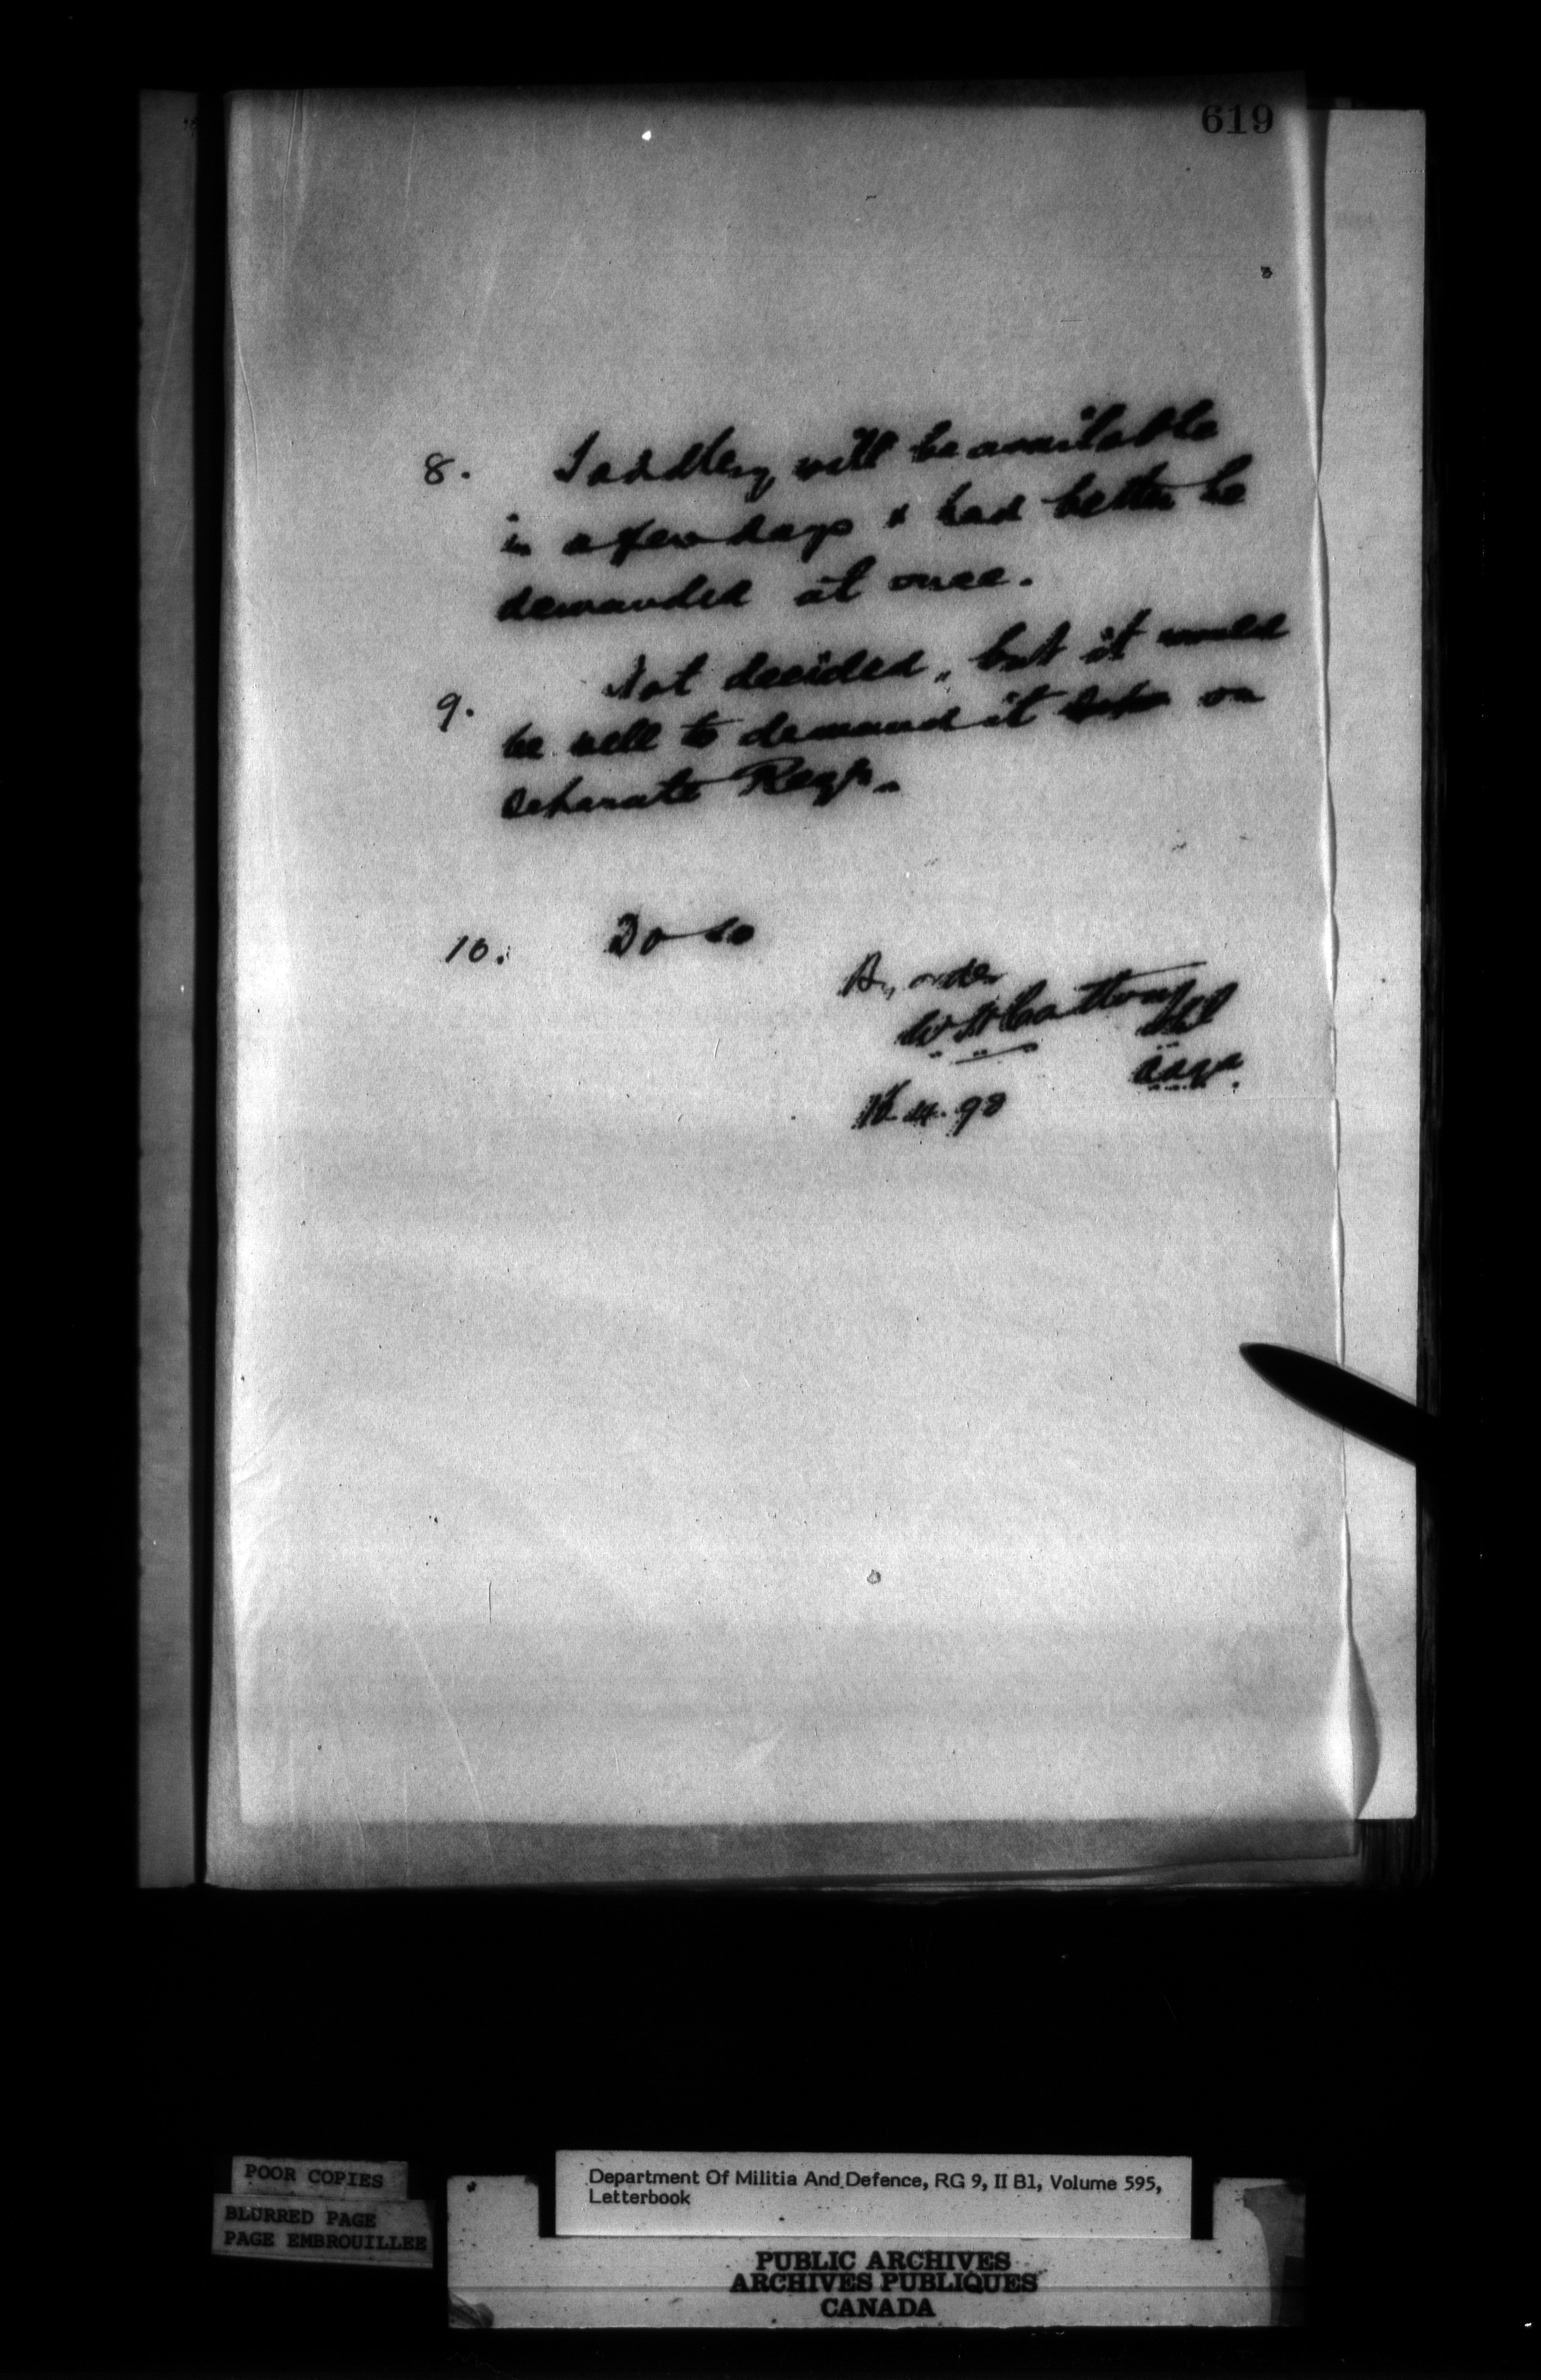 619
8. Saddlery will be available
in a few days & had better be
demanded at once.
9. Not decided, but it would
be well to demand it on
separate Reqn.
10. Do so
By order
W H Cotton Lt Col
AAG
.4.98
POOR COPIES
BLURRED PAGE
PAGE EMBROUILLEE
Department Of Militia And Defence, RG 9, II B1, Volume 595,
Letterbook
PUBLIC ARCHIVES
ARCHIVES PUBLIQUES
CANADA